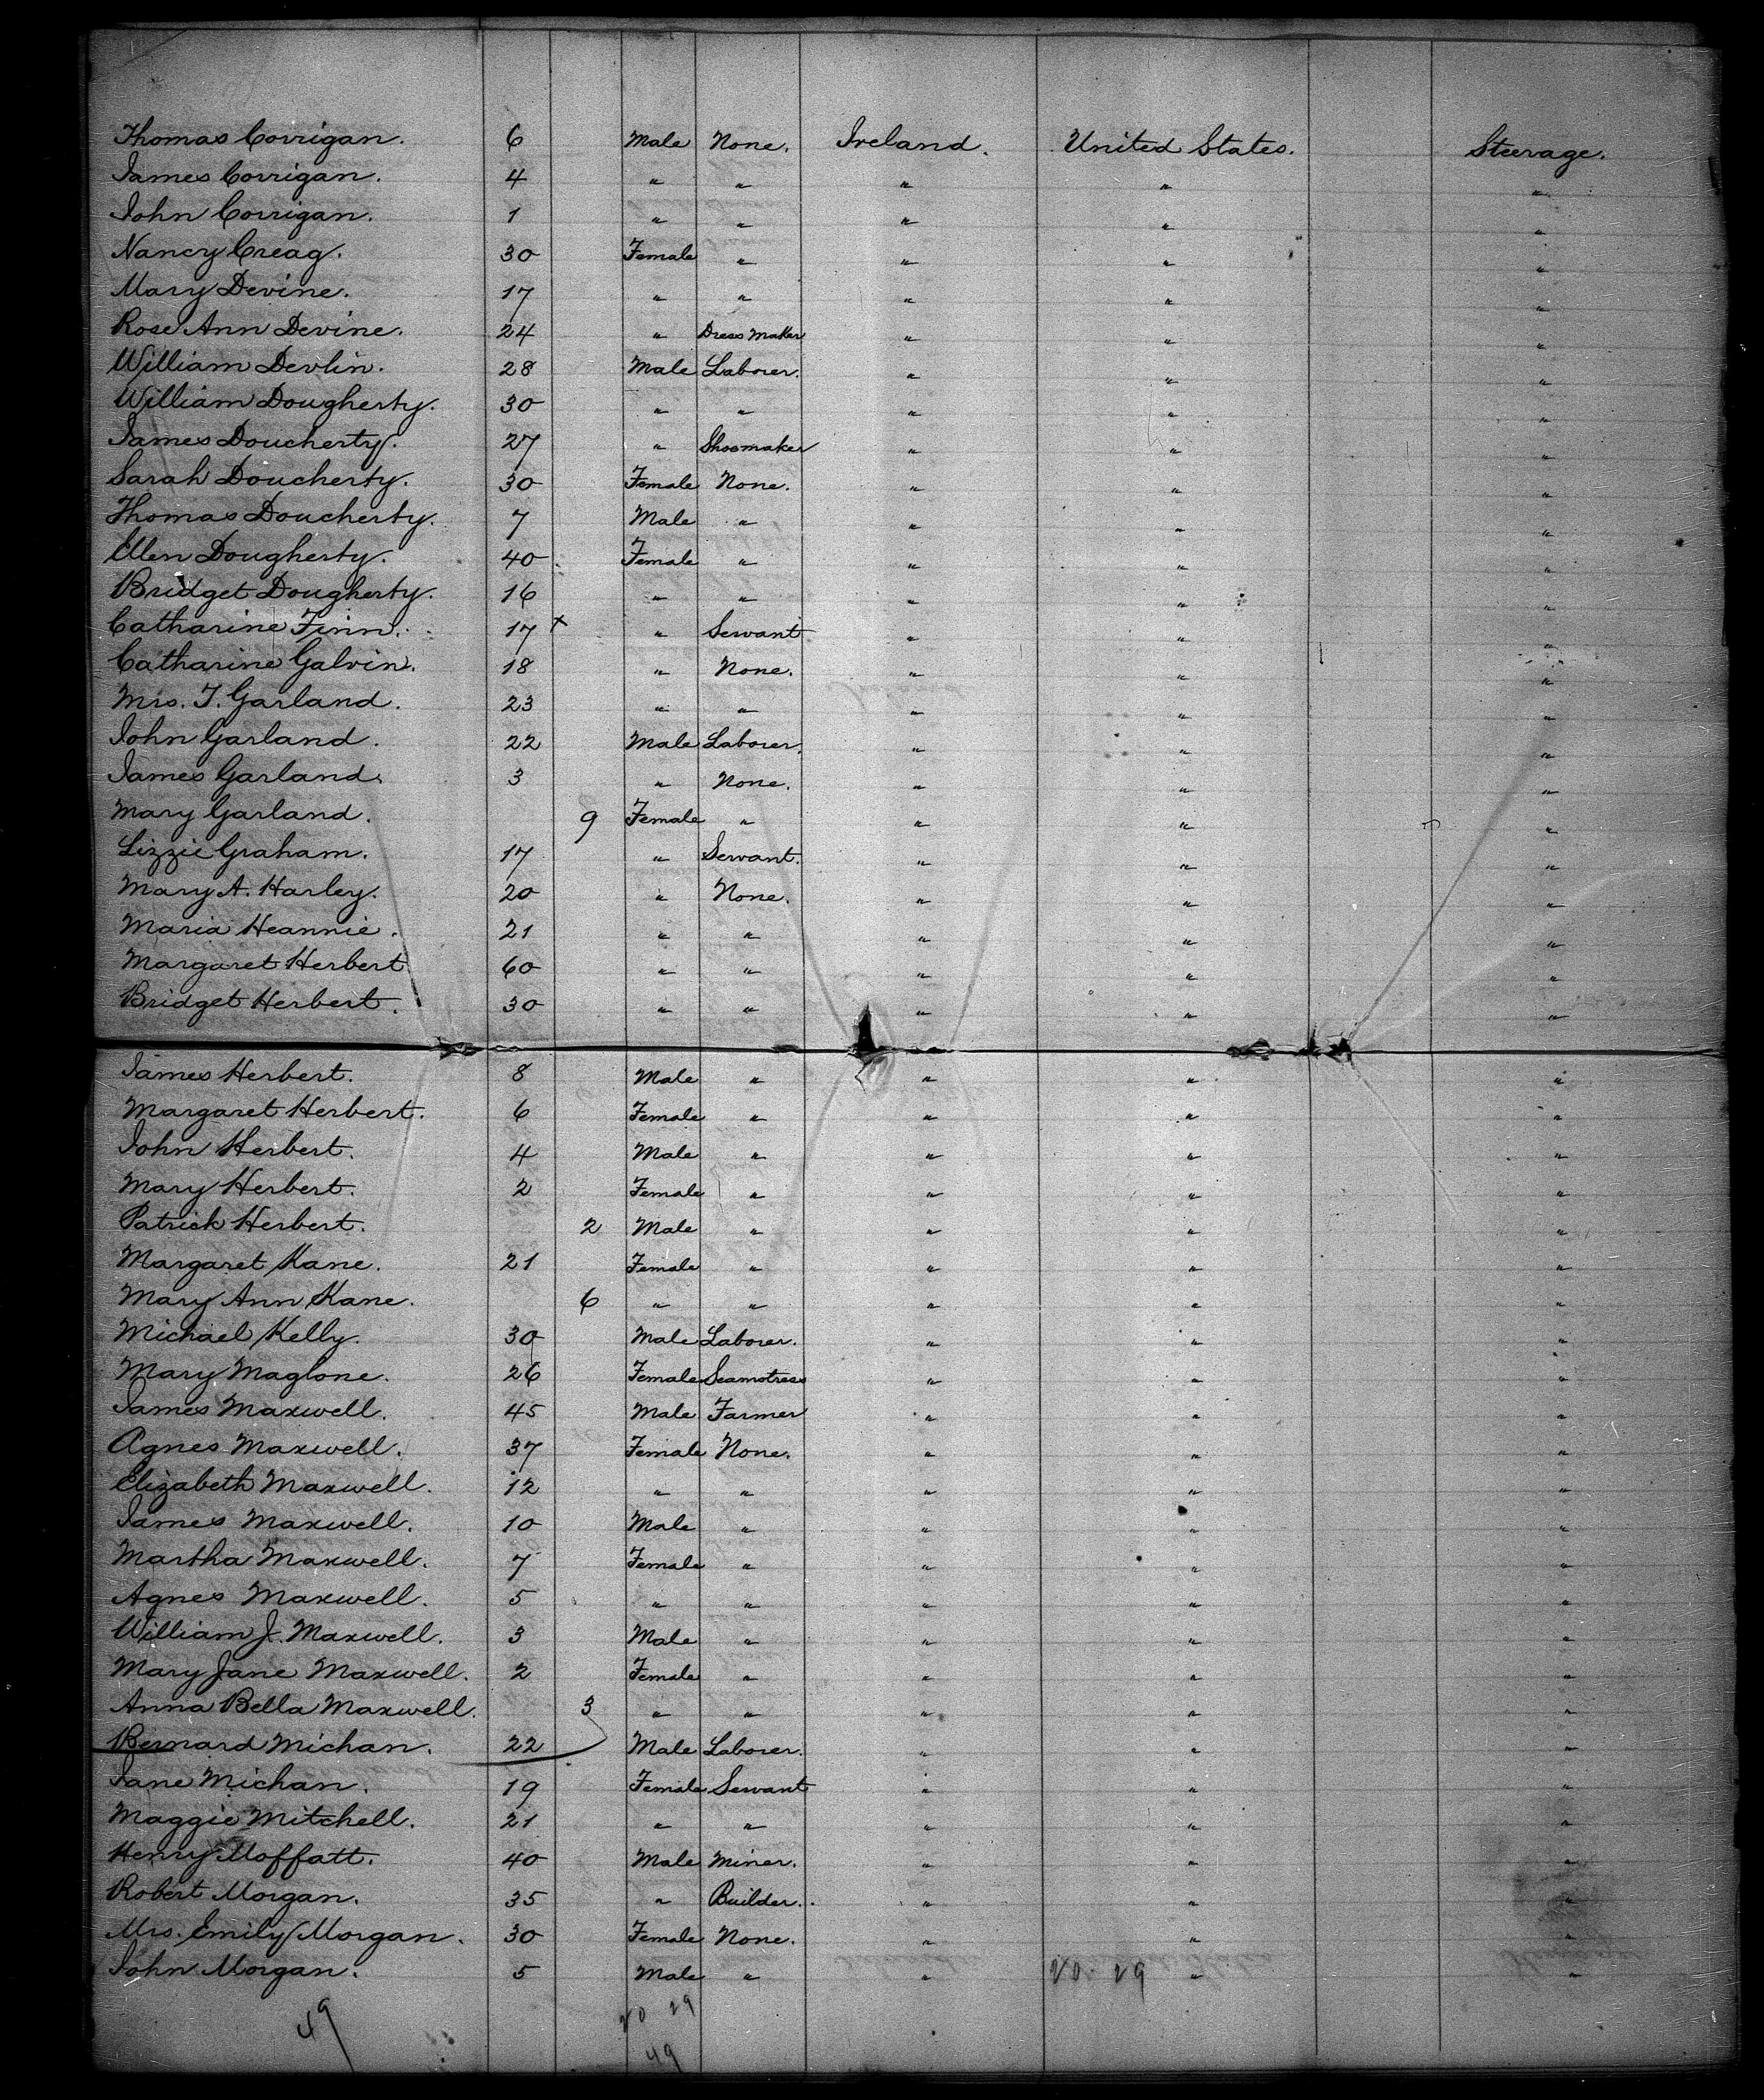 Thomas Corrigan. 6 Male None. Ireland. United States. Steerage.
James Corrigan. 4 " " " " "
John Corrigan. 1 " " " " "
Nancy Creag. 30 Female " " " "
Mary Devine. 17 " " " " "
Rose Ann Devine. 24 " Dress Maker " " "
William Devlin. 28 Male Laborer. " " "
William Dougherty. 30 " " " " "
James Doucherty. 27 " Shoemaker " " "
Sarah Doucherty. 30 Female None. " " "
Thomas Doucherty. 7 Male " " " "
Ellen Dougherty. 40 Female " " " "
Bridget Dougherty. 16 " " " " "
Catharine Finn. 17 x " Servant " " "
Catharine Galvin. 18 " None. " " "
Mrs. T. Garland. 23 " " " " "
John Garland. 22 Male Laborer. " " "
James Garland. 3 " None. " " "
Mary Garland. 9 Female " " " "
Lizzie Graham. 17 " Servant. " " "
Mary A. Harley. 20 " None. " " "
Maria Heannie. 21 " " " " "
Margaret Herbert 60 " " " " "
Bridget Herbert. 30 " " " " "
James Herbert. 8 Male " " " "
Margaret Herbert. 6 Female " " " "
John Herbert. 4 Male " " " "
Mary Herbert. 2 Female " " " "
Patrick Herbert. 2 Male " " " "
Margaret Kane. 21 Female " " " "
Mary Ann Kane. 6 " " " " "
Michael Kelly. 30 Male Laborer. " " "
Mary Maglone. 26 Female Seamstress " " "
James Maxwell. 45 Male Farmer " " "
Agnes Maxwell. 37 Female None. " " "
Elizabeth Maxwell. 12 " " " " "
James Maxwell. 10 Male " " " "
Martha Maxwell. 7 Female " " " "
Agnes Maxwell. 5 " " " " "
William J. Maxwell. 3 Male " " " "
Mary Jane Maxwell. 2 Female " " " "
Anna Bella Maxwell. 3 " " " " "
Bernard Michan. 22 Male Laborer. " " "
Jane Michan. 19 Female Servant " " "
Maggie Mitchell. 21 " " " " "
Henry Moffatt. 40 Male Miner. " " "
Robert Morgan. 35 " Builder. " " "
Mrs. Emily Morgan. 30 Female None. " " "
John Morgan. 5 Male " " 20 29 " "
49 20 29
49